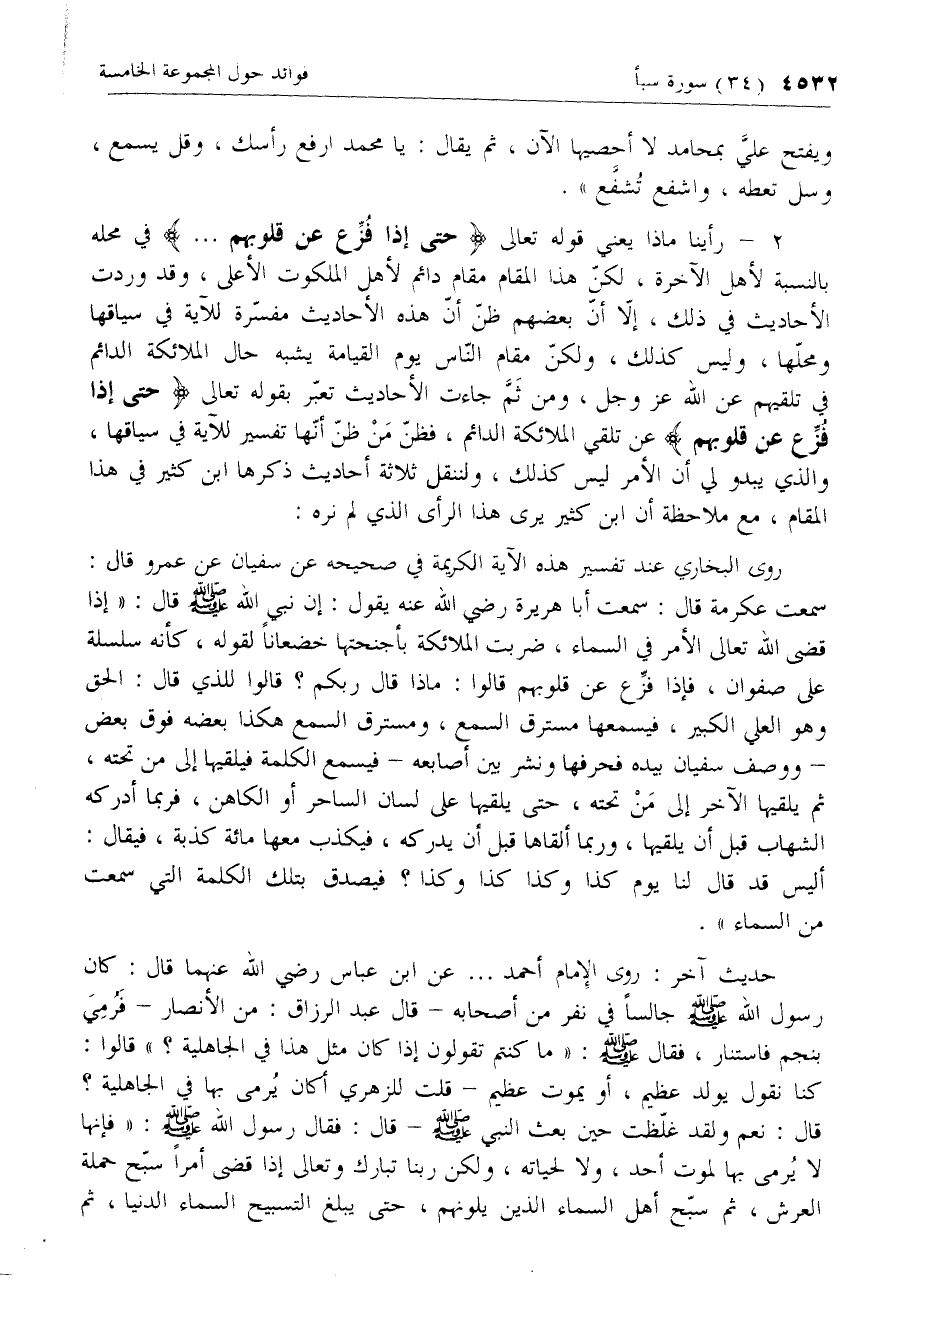 ٤٥٣٢ (٣٤) سورة سبأ فوائد حول المجموعة الخامسة
ويفتح عليَّ بمحامد لا أحصيها الآن ، ثم يقال : يا محمد ارفع رأسك ، وقل يسمع ،
وسل تعطه ، واشفع تُشفَّع » .
٢ – رأينا ماذا يعني قوله تعالى ﴿ حتى إذا فُزِّع عن قلوبهم ... ﴾ في محله
بالنسبة لأهل الآخرة ، لكنّ هذا المقام مقام دائم لأهل الملكوت الأعلى ، وقد وردت
الأحاديث في ذلك ، إلّا أنّ بعضهم ظنّ أنّ هذه الأحاديث مفسّرة للآية في سياقها
ومحلّها ، وليس كذلك ، ولكنّ مقام النّاس يوم القيامة يشبه حال الملائكة الدائم
في تلقيهم عن الله عز وجل ، ومن ثَمَّ جاءت الأحاديث تعبّر بقوله تعالى ﴿ حتى إذا
فُزِّع عن قلوبهم ﴾ عن تلقي الملائكة الدائم ، فظنّ مَنْ ظنّ أنّها تفسير للآية في سياقها ،
والذي يبدو لي أن الأمر ليس كذلك ، ولننقل ثلاثة أحاديث ذكرها ابن كثير في هذا
المقام ، مع ملاحظة أن ابن كثير يرى هذا الرأى الذي لم نره :
روى البخاري عند تفسير هذه الآية الكريمة في صحيحه عن سفيان عن عمرو قال :
سمعت عكرمة قال : سمعت أبا هريرة رضي الله عنه يقول : إن نبي الله ﷺ قال : « إذا
قضى الله تعالى الأمر في السماء ، ضربت الملائكة بأجنحتها خضعاناً لقوله ، كأنه سلسلة
على صفوان ، فإذا فزِّع عن قلوبهم قالوا : ماذا قال ربكم ؟ قالوا للذي قال : الحق
وهو العلي الكبير ، فيسمعها مسترق السمع ، ومسترق السمع هكذا بعضه فوق بعض
– ووصف سفيان بيده فحرفها ونشر بين أصابعه – فيسمع الكلمة فيلقيها إلى من تحته ،
ثم يلقيها الآخر إلى مَنْ تحته ، حتى يلقيها على لسان الساحر أو الكاهن ، فربما أدركه
الشهاب قبل أن يلقيها ، وربما ألقاها قبل أن يدركه ، فيكذب معها مائة كذبة ، فيقال :
أليس قد قال لنا يوم كذا وكذا كذا وكذا ؟ فيصدق بتلك الكلمة التي سمعت
من السماء » .
حديث آخر : روى الإمام أحمد ... عن ابن عباس رضي الله عنهما قال : كان
رسول الله ﷺ جالساً في نفر من أصحابه – قال عبد الرزاق : من الأنصار – فَرُمِيَ
بنجم فاستنار ، فقال ﷺ : « ما كنتم تقولون إذا كان مثل هذا في الجاهلية ؟ » قالوا :
كنا نقول يولد عظيم ، أو يموت عظيم – قلت للزهري أكان يُرمى بها في الجاهلية ؟
قال : نعم ولقد غلّظت حين بعث النبي ﷺ – قال : فقال رسول الله ﷺ : « فإنها
لا يُرمى بها لموت أحد ، ولا لحياته ، ولكن ربنا تبارك وتعالى إذا قضى أمراً سبّح حملة
العرش ، ثم سبّح أهل السماء الذين يلونهم ، حتى يبلغ التسبيح السماء الدنيا ، ثم